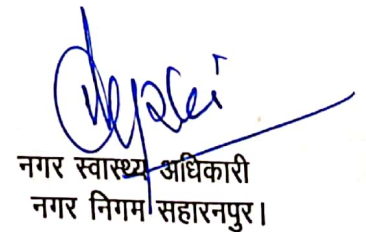 नगर स्वास्थ्य अधिकारी
नगर निगम सहारनपुर।